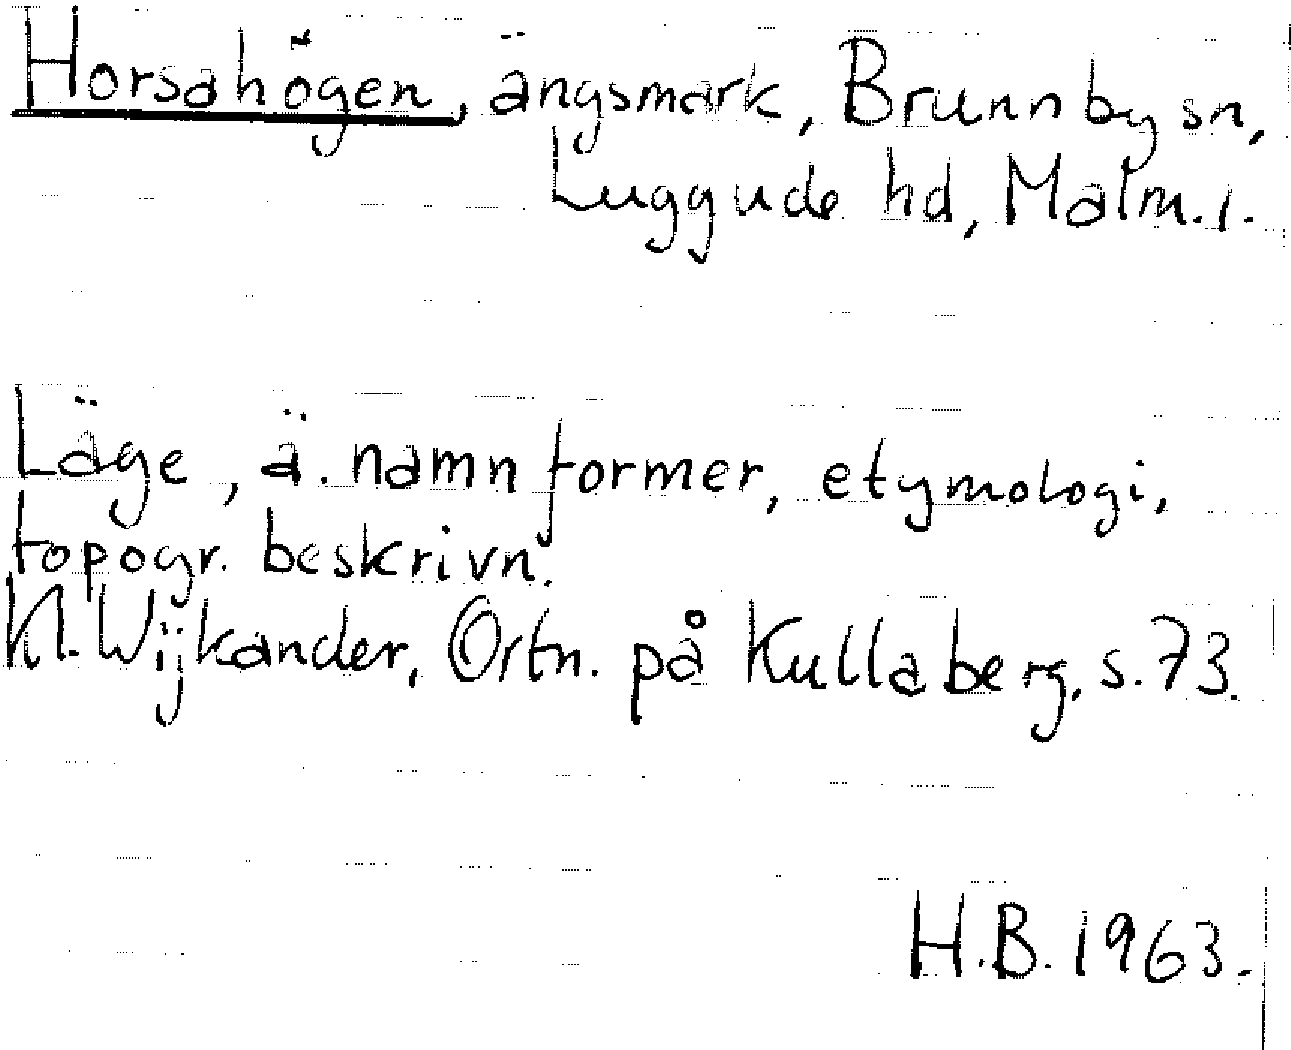 Horsahögen, ängsmark, Brunnby sn,
Luggude hd, Malm. l.
Läge, ä. namnformer, etymologi,
topogr. beskrivn.
N. Wijkander, Ortn. på Kullaberg, s. 73.
H.B. 1963.